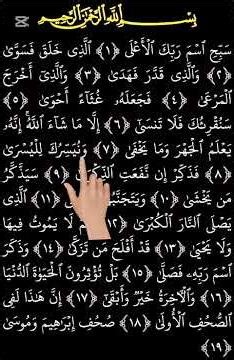 بِسْمِ ٱللَّهِ ٱلرَّحْمَٰنِ ٱلرَّحِيمِ
سَبِّحِ ٱسْمَ رَبِّكَ ٱلْأَعْلَى ﴿١﴾ ٱلَّذِى خَلَقَ فَسَوَّىٰ
﴿٢﴾ وَٱلَّذِى قَدَّرَ فَهَدَىٰ ﴿٣﴾ وَٱلَّذِىٓ أَخْرَجَ
ٱلْمَرْعَىٰ ﴿٤﴾ فَجَعَلَهُۥ غُثَآءً أَحْوَىٰ ﴿٥﴾
سَنُقْرِئُكَ فَلَا تَنسَىٰٓ ﴿٦﴾ إِلَّا مَا شَآءَ ٱللَّهُ إِنَّهُۥ
يَعْلَمُ ٱلْجَهْرَ وَمَا يَخْفَىٰ ﴿٧﴾ وَنُيَسِّرُكَ لِلْيُسْرَىٰ
﴿٨﴾ فَذَكِّرْ إِن نَّفَعَتِ ٱلذِّكْرَىٰ ﴿٩﴾ سَيَذَّكَّرُ
مَن يَخْشَىٰ ﴿١٠﴾ وَيَتَجَنَّبُهَا
يَصْلَى ٱلنَّارَ ٱلْكُبْرَىٰ ﴿١٢﴾ لَا يَمُوتُ فِيهَا
وَلَا يَحْيَىٰ ﴿١٣﴾ قَدْ أَفْلَحَ مَن تَزَكَّىٰ ﴿١٤﴾ وَذَكَرَ
ٱسْمَ رَبِّهِۦ فَصَلَّىٰ ﴿١٥﴾ بَلْ تُؤْثِرُونَ ٱلْحَيَوٰةَ ٱلدُّنْيَا
﴿١٦﴾ وَٱلْآخِرَةُ خَيْرٌ وَأَبْقَىٰٓ ﴿١٧﴾ إِنَّ هَٰذَا لَفِى
ٱلصُّحُفِ ٱلْأُولَىٰ ﴿١٨﴾ صُحُفِ إِبْرَٰهِيمَ وَمُوسَىٰ
﴿١٩﴾